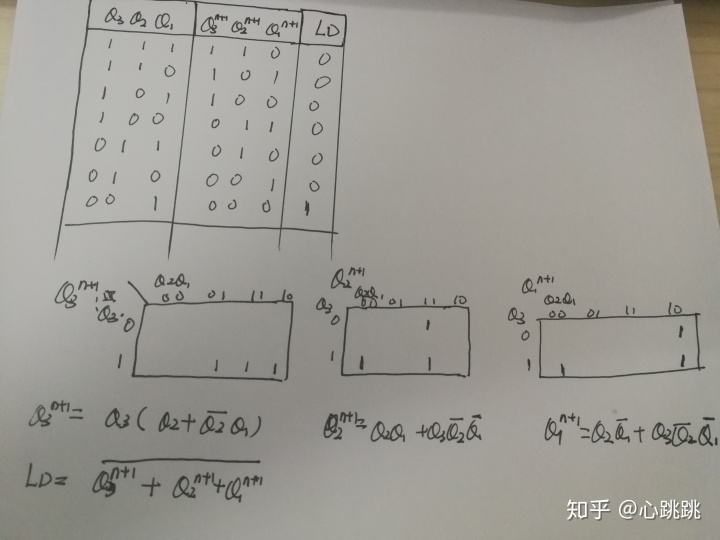 Q₃ Q₂ Q₁ Q₃ⁿ⁺¹ Q₂ⁿ⁺¹ Q₁ⁿ⁺¹ LD
1 1 1 1 1 0 0
1 1 0 1 0 1 0
1 0 1 1 0 0 0
1 0 0 0 1 1 0
0 1 1 0 1 0 0
0 1 0 0 0 1 0
0 0 1 0 0 0 1
Q₃ⁿ⁺¹
Q₂Q₁
Q₃
00 01 11 10
0
1 1 1 1
Q₂ⁿ⁺¹
Q₂Q₁
Q₃ 00 01 11 10
0 1
1 1 1
Q₁ⁿ⁺¹
Q₂Q₁
Q₃ 00 01 11 10
0 1
1 1 1
Q₃ⁿ⁺¹ = Q₃(Q₂+Q̅₂Q₁)
Q₂ⁿ⁺¹ = Q₂Q₁ + Q₃Q̅₂Q̅₁
Q₁ⁿ⁺¹ = Q₂Q̅₁ + Q₃Q̅₂Q̅₁
LD = \overline{Q₃ⁿ⁺¹ + Q₂ⁿ⁺¹ + Q₁ⁿ⁺¹}
知乎 @心跳跳